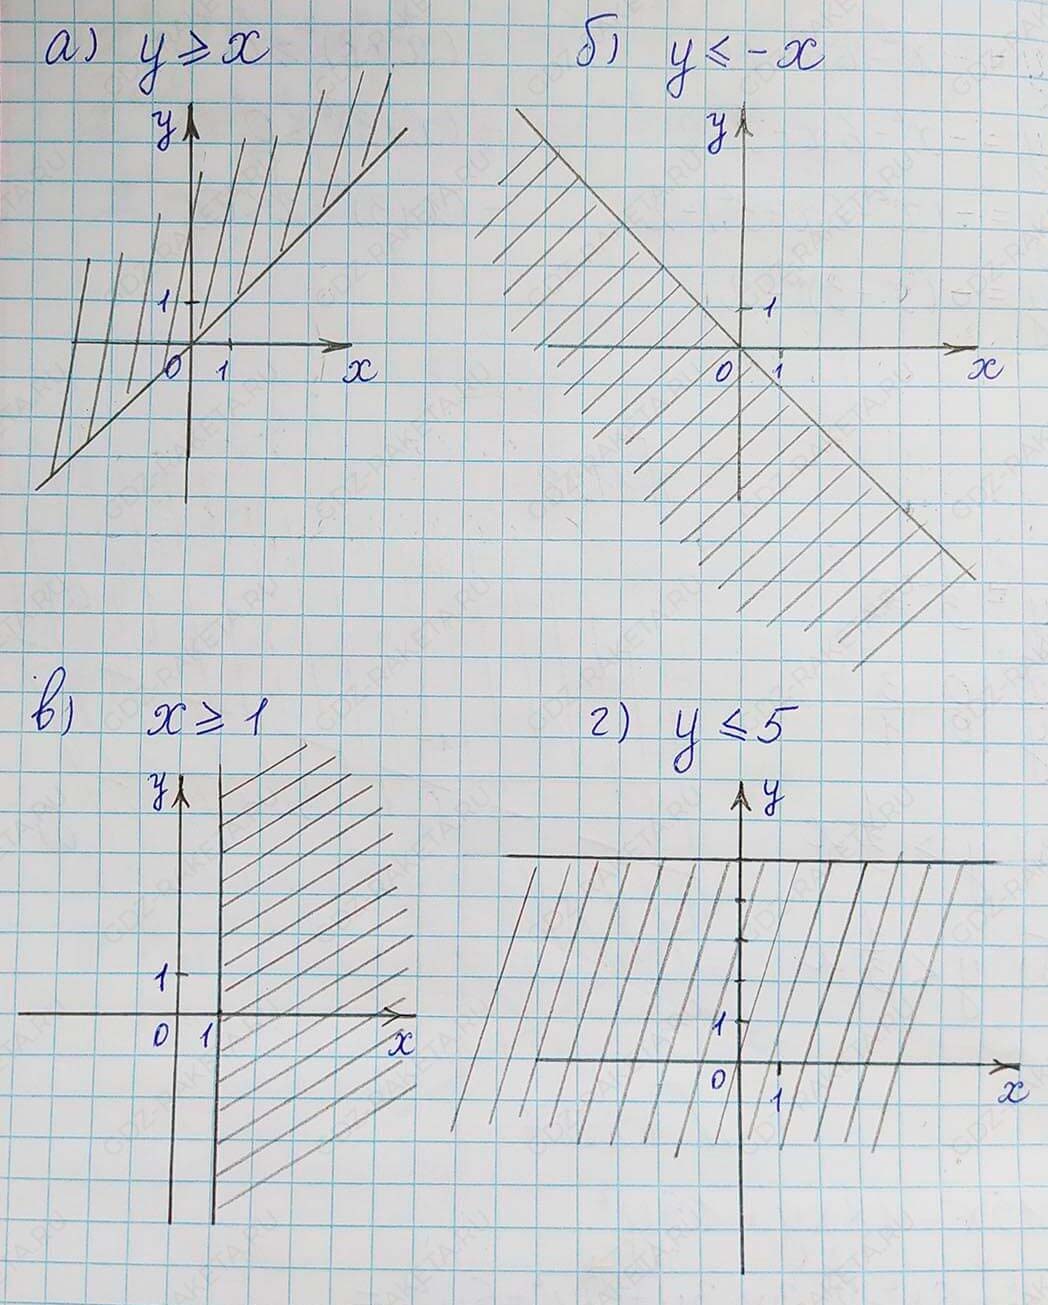 а) y ⩾ x
б) y ⩽ -x
y
1
0 1 x
y
1
0 1 x
в) x ⩾ 1
г) y ⩽ 5
y
1
0 1 x
y
1
0 1 x
GDZ-RAKETA.RU